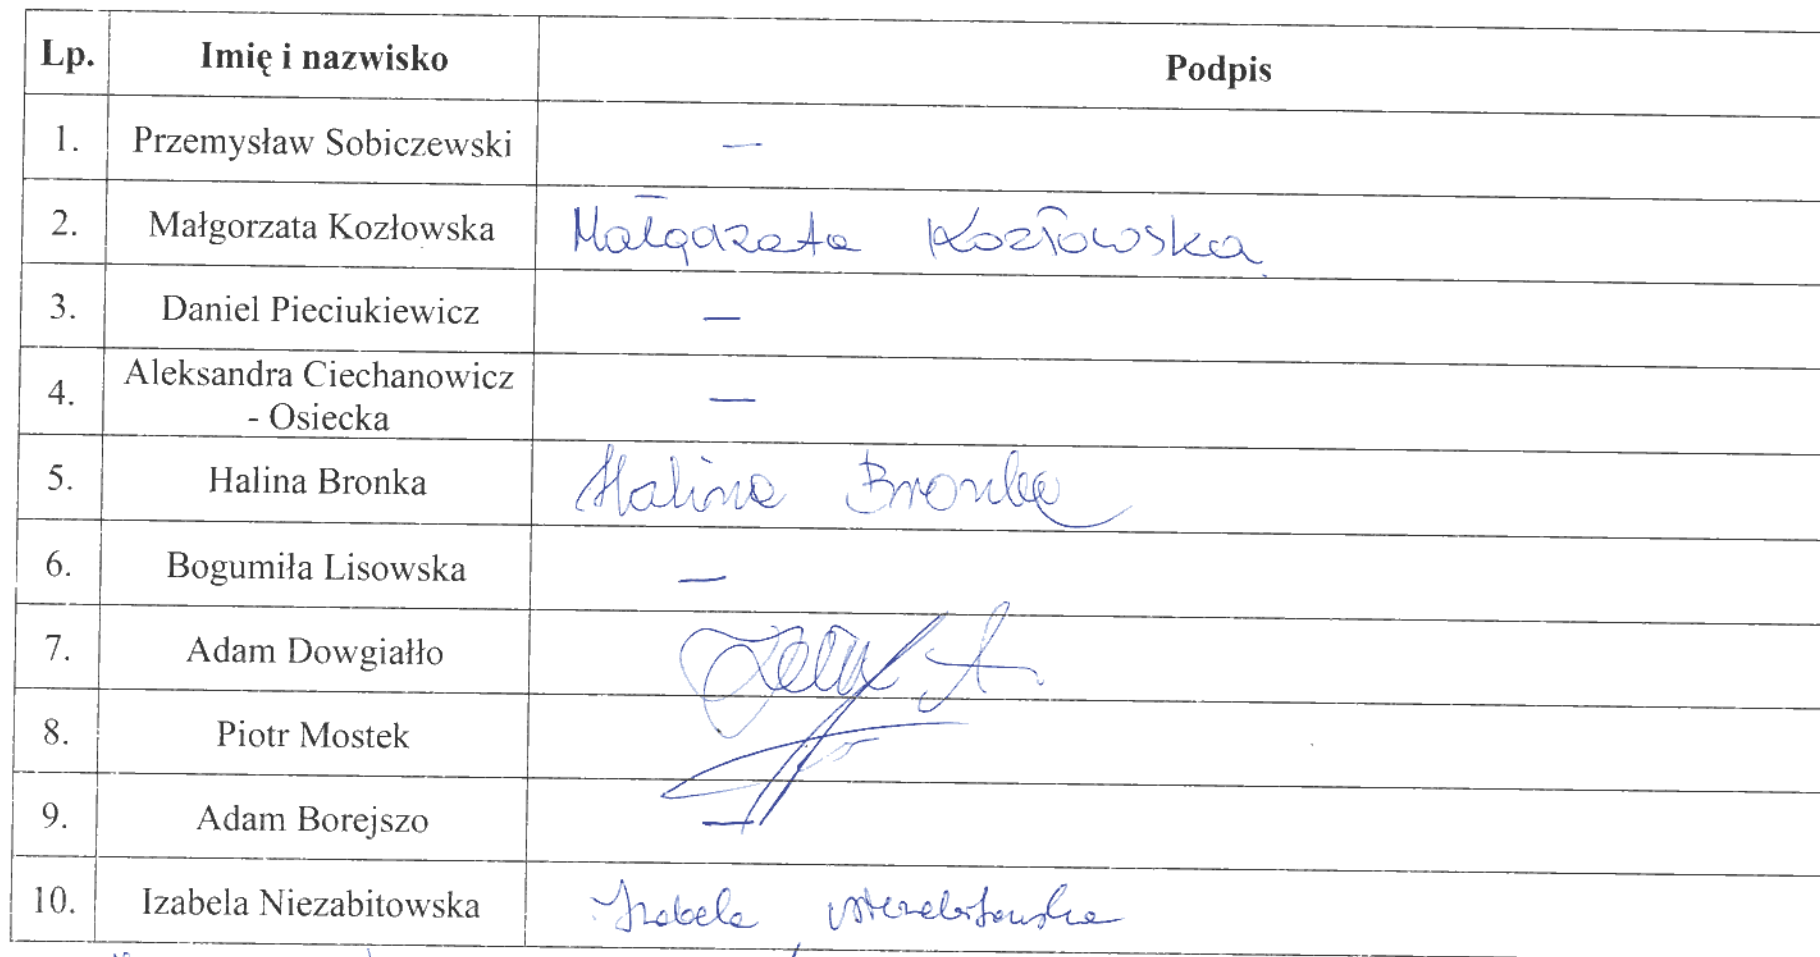 Lp. Imię i nazwisko Podpis
1. Przemysław Sobiczewski —
2. Małgorzata Kozłowska Małgorzata Kozłowska
3. Daniel Pieciukiewicz —
4. Aleksandra Ciechanowicz —
- Osiecka
5. Halina Bronka Halina Bronka
6. Bogumiła Lisowska —
7. Adam Dowgiałło
8. Piotr Mostek
9. Adam Borejszo —
10. Izabela Niezabitowska Izabela Niezabitowska